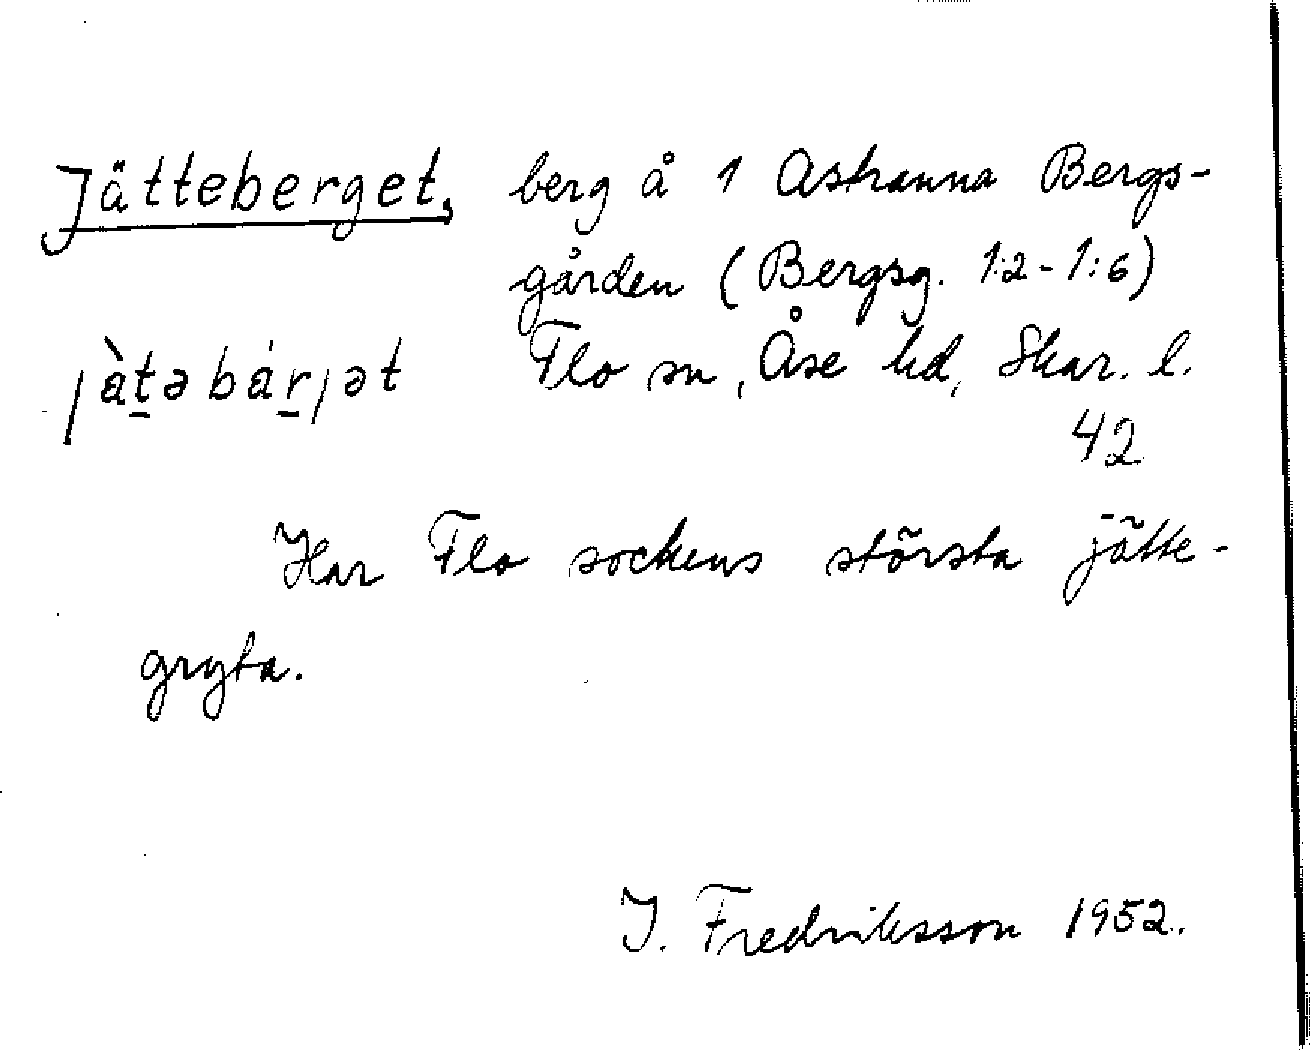 Jätteberget, berg å 1 Astranna Bergs-
gården (Bergsg. 1:2-1:6)
jàt̠əbár̠jət Flo sn, Åse hd, Skar. l.
42
Har Flo sockens största jätte-
gryta.
J. Fredriksson 1952.